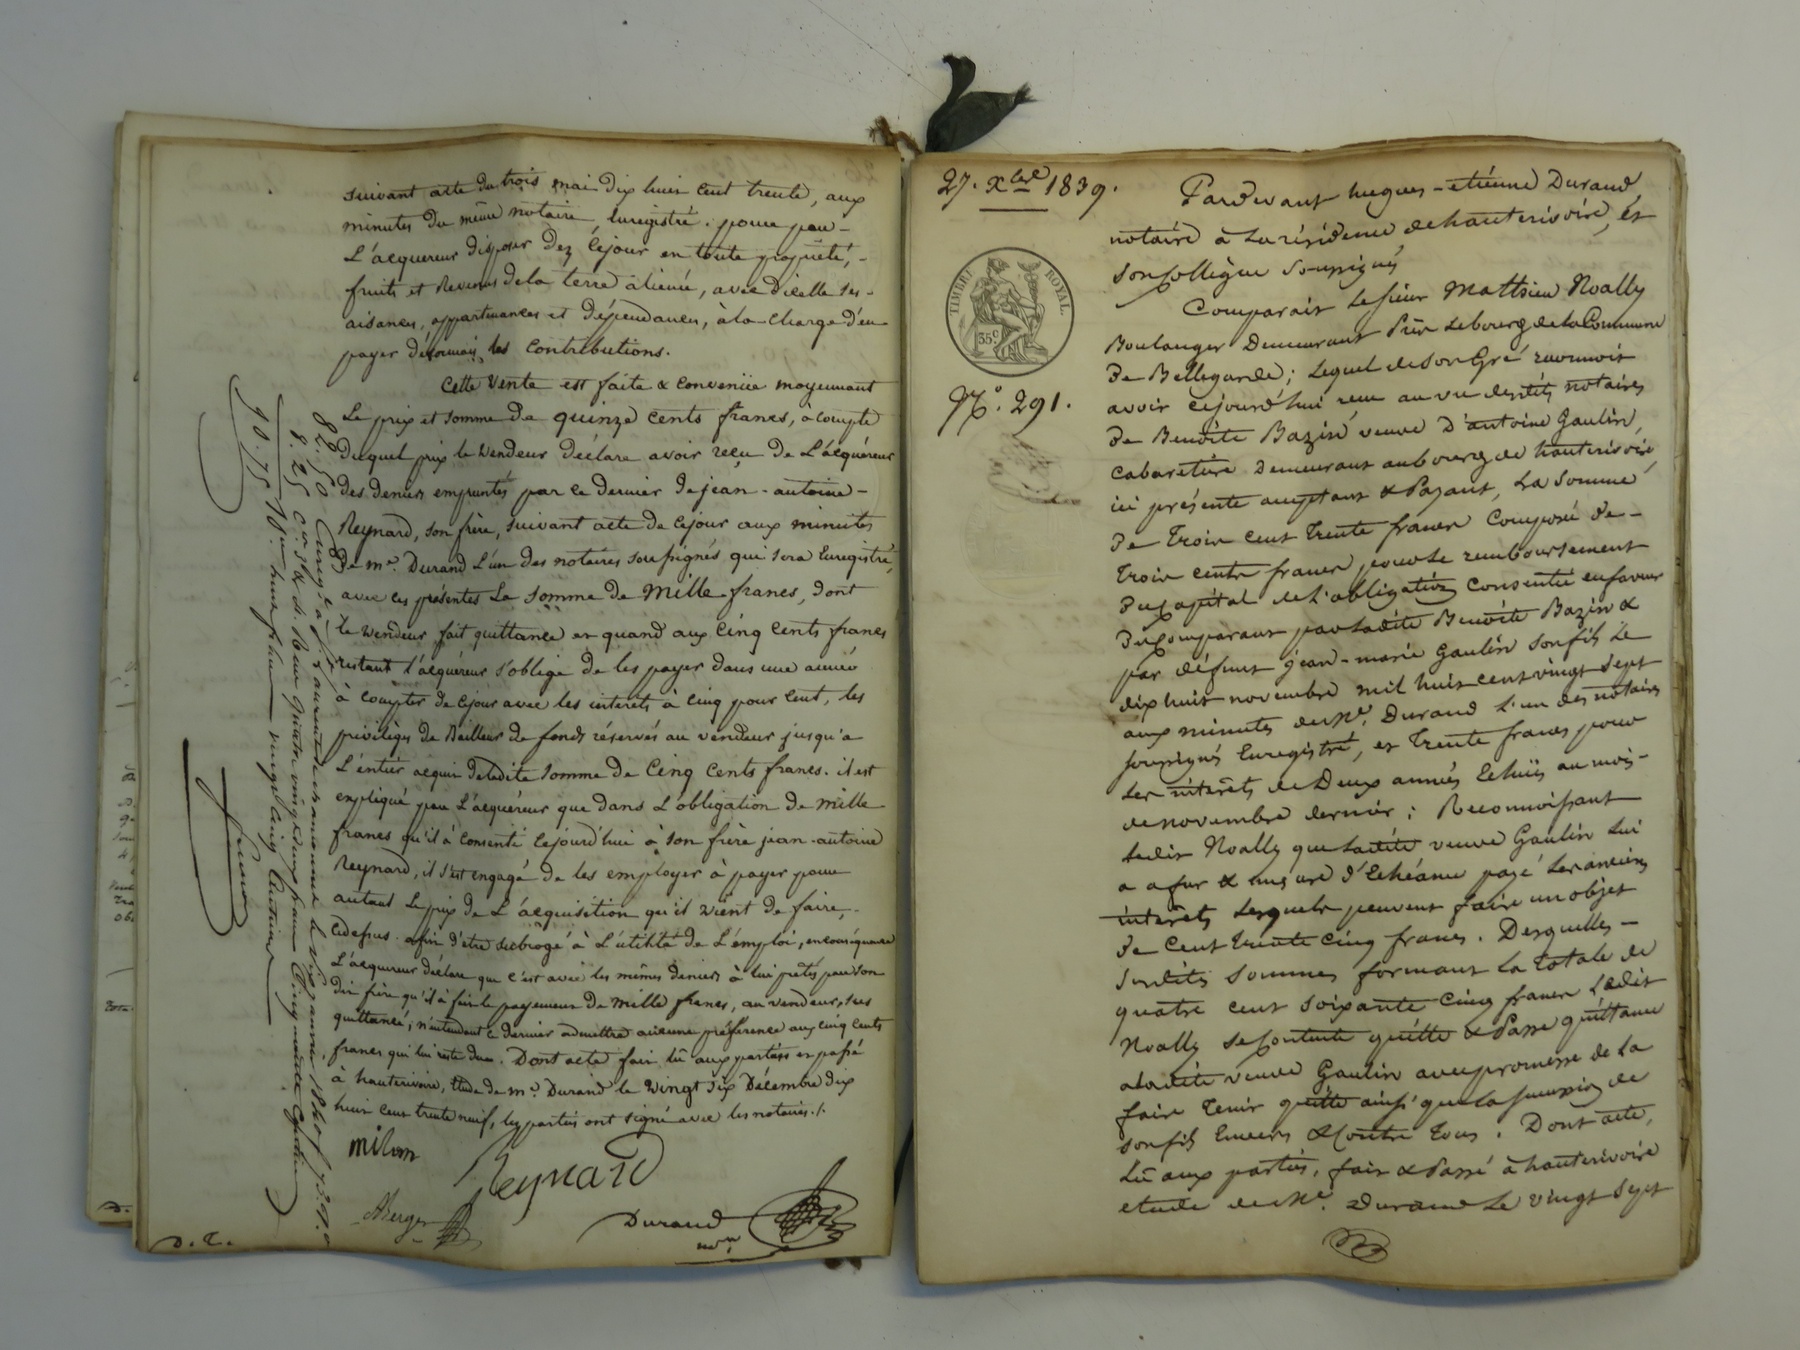 suivant acte du trois mai dix huit cent trente, aux
minutes du même notaire, Enregistré. pour par
L'acquereur disposer dez cejour en toute propriété,
fruits et Revenus de la terre aliénée, avec d'icelle ses
aisances, appartenances et dépendances, à la charge d'en
payer désormais les contributions.
Cette Vente est faite & convenüe moyennant
Le prix et somme de quinze cents francs, à compte
duquel prix le vendeur déclare avoir reçu de L'acquéreur
des deniers empruntés par ce dernier de jean-antoine
Reynard, son frère, suivant acte de cejour aux minutes
de me. Durand L'un des notaires soussignés qui sera Enregistré,
avec ces présentes La Somme de Mille francs, dont
le vendeur fait quittance et quand aux cinq cents francs
restant l'acquéreur s'oblige de les payer dans une année
à compter de cejour avec les interets à cinq pour cent, les
privilèges de Bailleur de fonds réservés au vendeur jusqu'a
L'entier acquit deladite Somme de Cinq Cents francs. il est
expliqué par L'acquéreur que dans L'obligation de mille
francs qu'il à consenti Cejourd'hui à son frère jean-antoine
Reynard, il s'est engagé de les employer à payer pour
autant Le prix de L'acquisition qu'il vient de faire,
Cidessus afin d'etre subrogé à L'utilité de L'emploi, en conséquence
L'acquereur déclare que c'est avec les mêmes deniers à lui pretés par son
dit frère qu'il à fait le payement de mille francs, au vendeur, sus
quittancé, n'entendant ce dernier admettre aucune préférence aux cinq cents
francs qui lui reste dues. Dont acte fait lû aux parties et passé
à hauterivoire, Etude de me. Durand le vingt six Décembre dix
huit cent trente neuf, les parties ont signé avec les notaires./.
milom
Reynard
Berger
Durand
nore
D. R.
82. 50
8. 25
90. 75
27. Xbre 1839.
TIMBRE ROYAL
35c
No. 291.
Pardevant hugues-etiénne Durand,
notaire à La résidence de hauterivoire, et
son Collègue Soussignés
Comparait Le sieur Mathieu Noally
Boulanger Demeurant Sur Le bourg de la Commune
De Bellegarde; Lequel de son Gré reconnoit
avoir cejourd'hui reçu au vu desdits notaires
De Benoîte Bazin veuve D'antoine Gaulin,
cabaretière Demeurant au bourg de hauterivoire,
ici présente acceptant & Payant, La Somme
De Trois cent Trente francs Composée de
Trois cents francs pour le remboursement
Du Capital de L'obligation Consentie en faveur
Du Comparant par Ladite Benoîte Bazin &
par défunt jean-marie Gaulin son fils Le
dix huit novembre mil huit cent vingt Sept
aux minutes de Me. Durand L'un des notaires
soussignés Enregistré, et Trente francs pour
Les intérêts de Deux années Echuës au mois
de novembre dernier; Reconnoissant
Ledit Noally que Ladite veuve Gaulin Lui
a a fur & mesure d'Echéance payé Les anciens
intérêts Lesquels peuvent faire un objet
De Cent trente cinq francs. Desquelles
Susdites sommes formant La totale de
quatre cent soixante cinq francs Ledit
Noally se Contente quitte & Passe quittance
à Ladite veuve Gaulin avec promesse de La
faire Tenir quitte ainsi que La succession de
son fils Envers & Contre Tous. Dont acte,
Lû aux parties, fait & Passé à hauterivoire
etude de Me. Durand Le vingt Sept